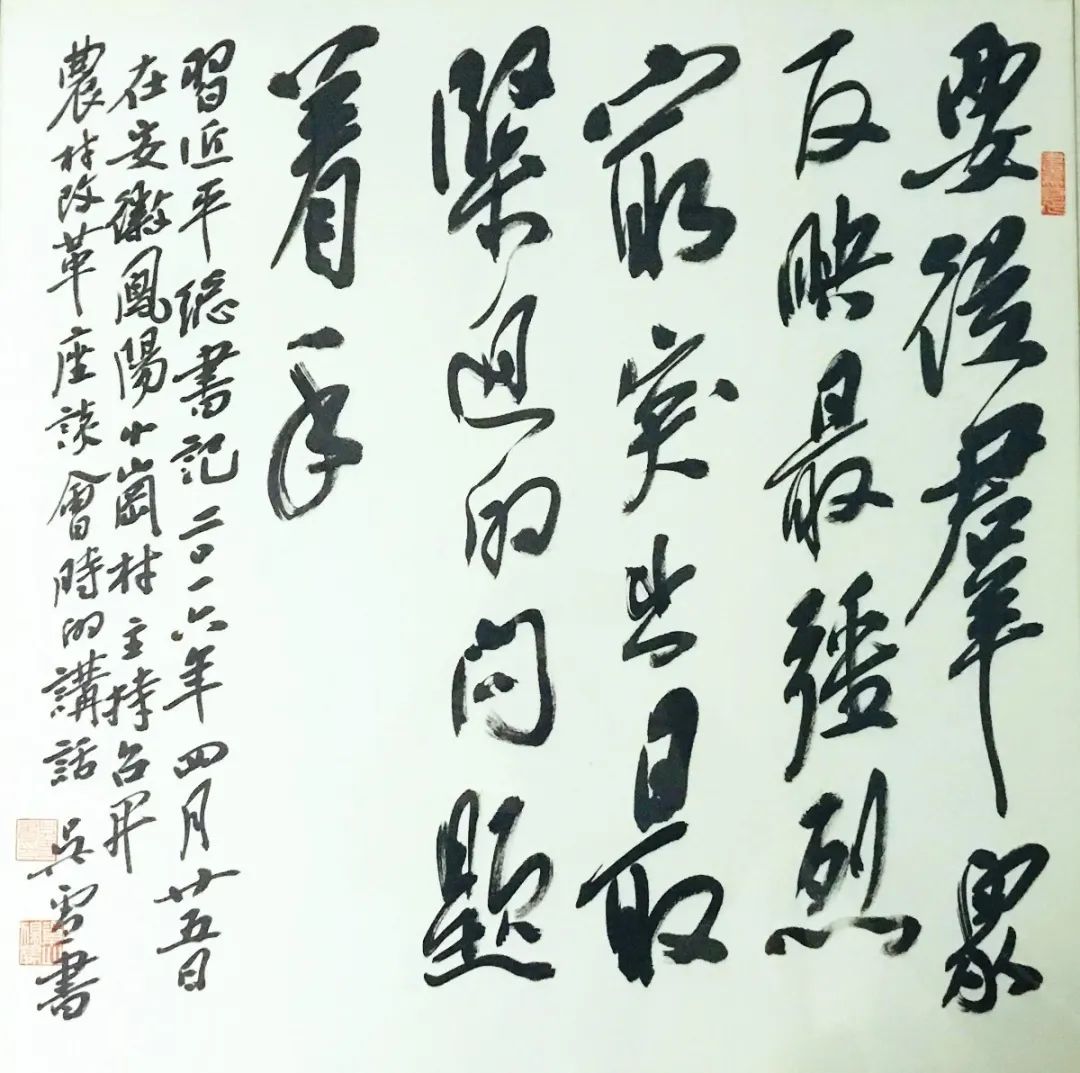 要從羣衆
反映最强烈
最突出最
緊迫的问題
着手
習近平總書記二〇一六年四月廿五日
在安徽鳳陽小崗村主持召開
農村改革座談會時的講話 吳雪書